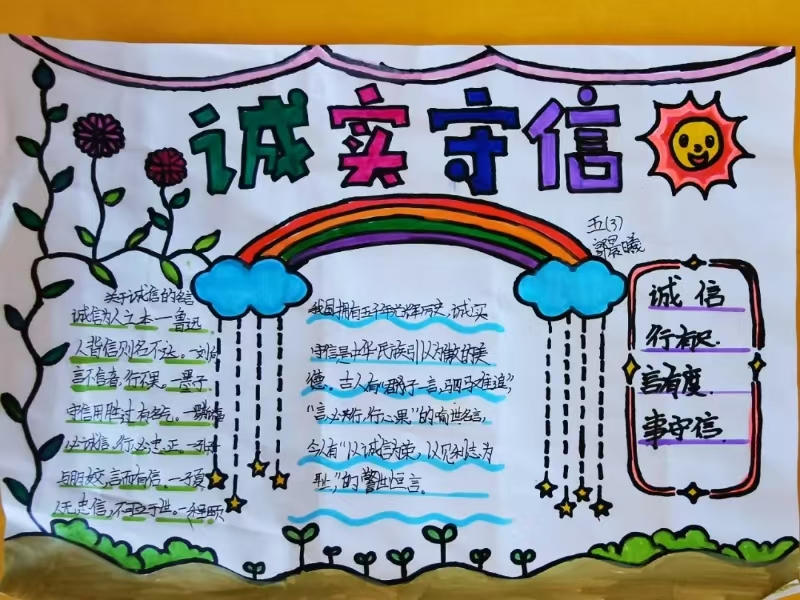 诚实守信
五(3)
郭晨曦
关于诚信的名言
诚信为人之本——鲁迅
人背信则名不达。—刘向
言不信者,行不果。—墨子
守信用胜过有名气。—
必诚信,行必忠正。—孔子
与朋友交,言而有信。—子夏
人无忠信,不可立于世。—程颐
我国拥有五千年光辉历史,诚实
守信是中华民族引以为傲的美
德。古人有“君子一言,驷马难追”
“言必行,行必果”的喻世名言,
今人有“以诚信为荣,以见利忘为
耻”的警世恒言。
诚信
行有尺.
言有度.
事守信.